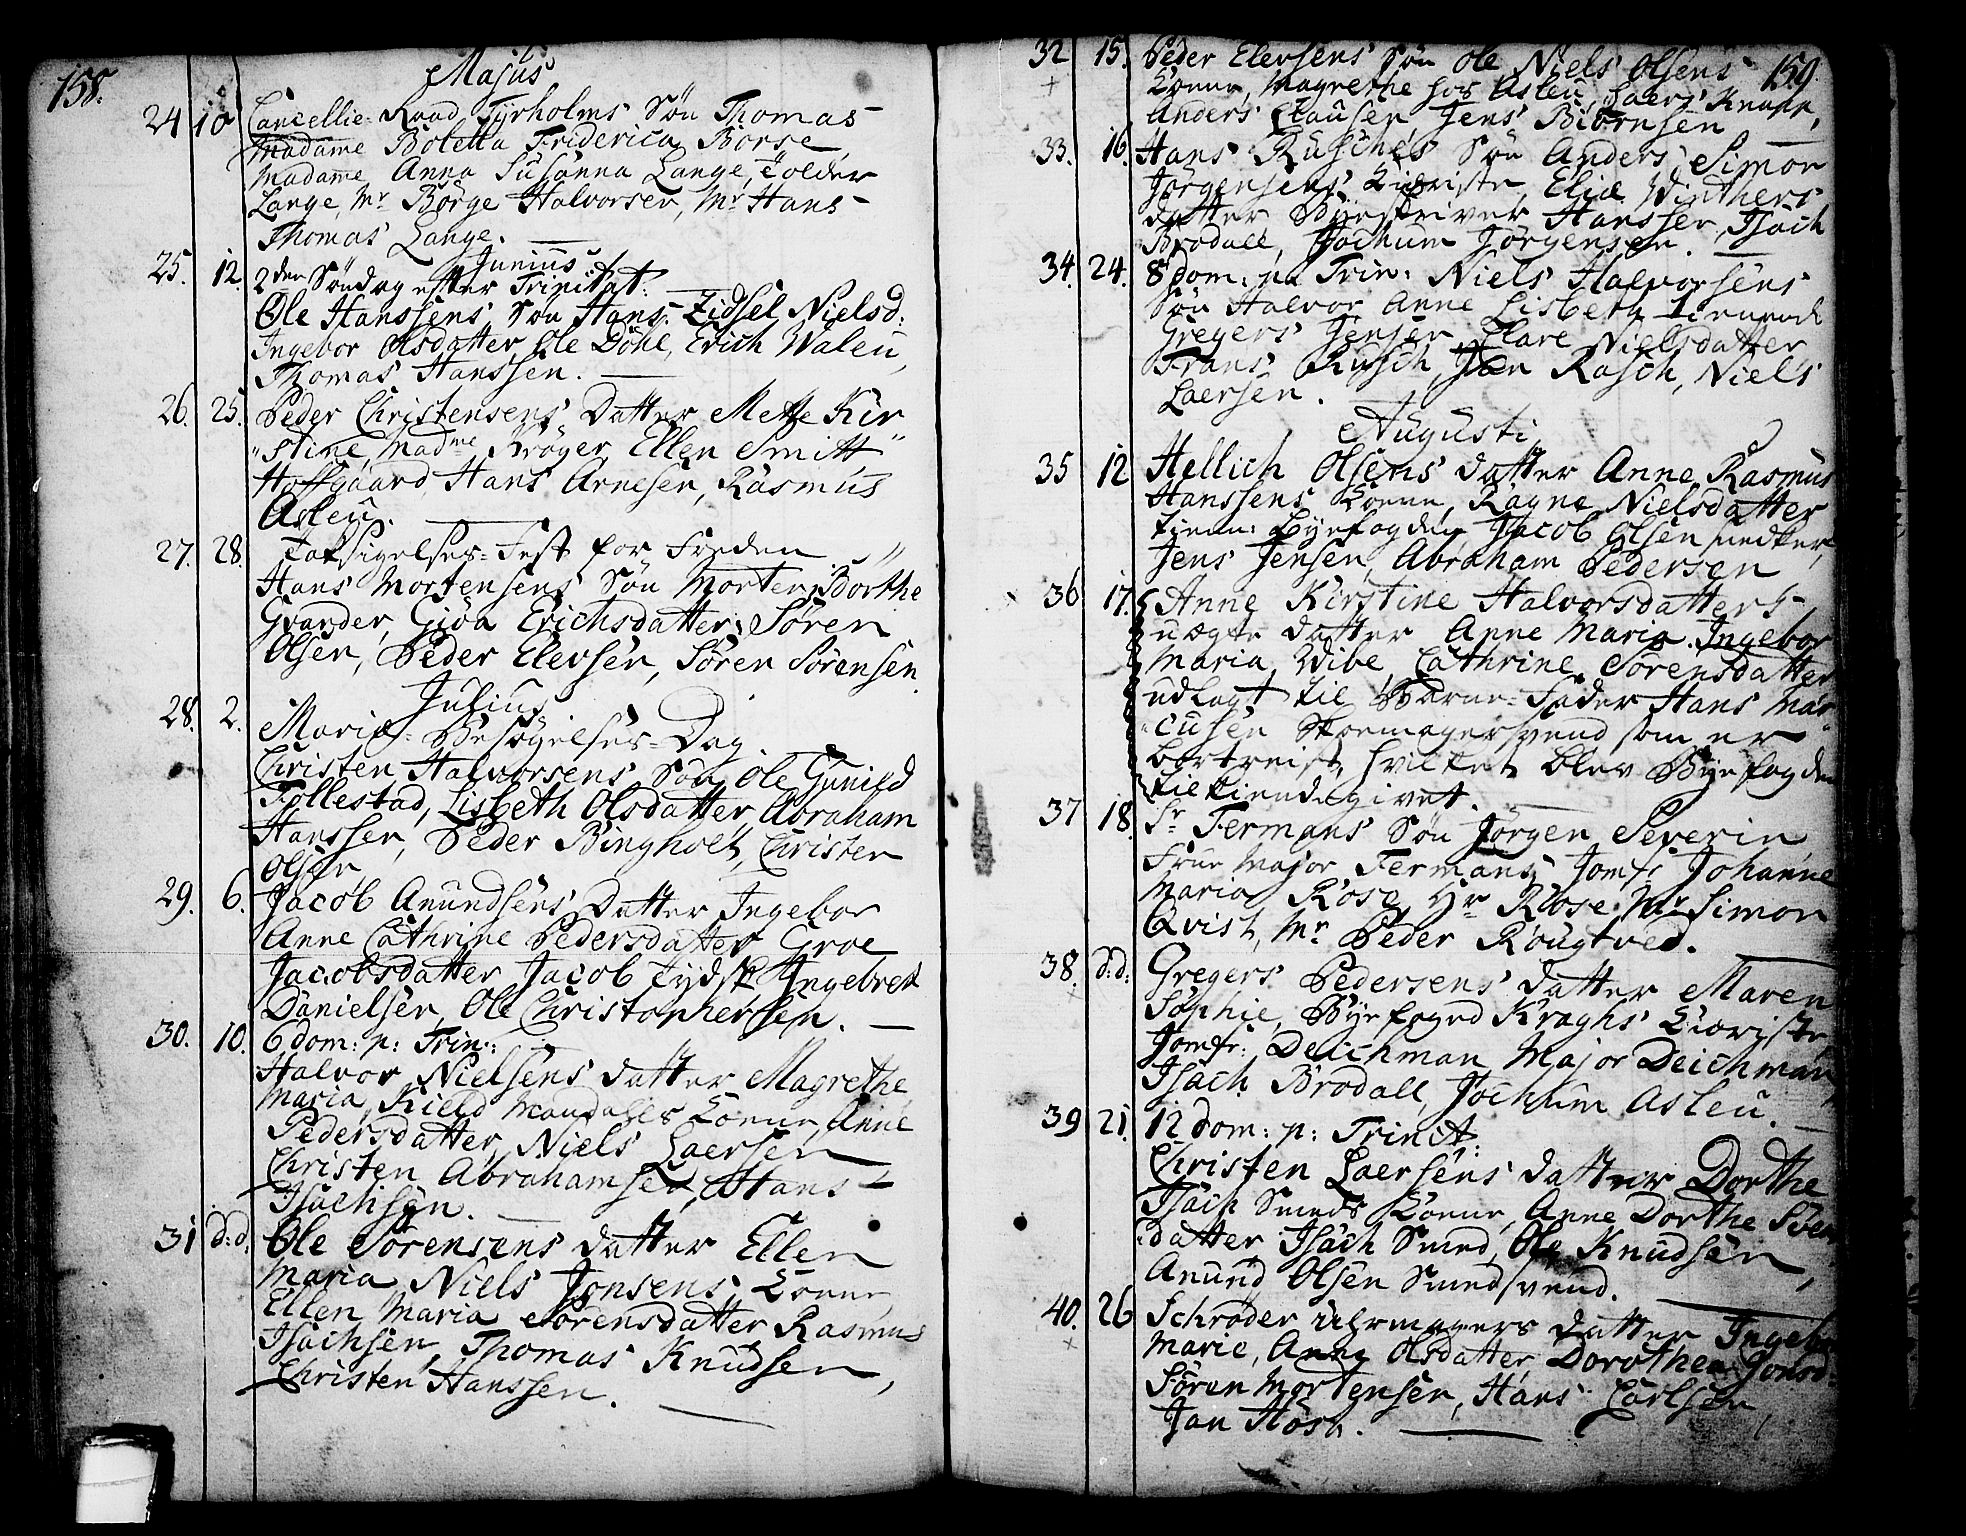 158.
Majus
24 10 Cancellie-Raad Tyrholms Søn Thomas
Madame Boletta Friderica Borse,
Madame Anna Susanna Lange, Tolder
Lange, Mr Børge Halvorsen, Mr Hans
Thomas Lange.
Junius.
25. 12. 2den Søndag efter Trinitat:
Ole Hanssens Søn Hans. Zidsel Nielsd:
Ingebor Olsdatter, Ole Döhl, Erich Waleu,
Thomas Hanssen.
26. 25. Peder Christensens Datter Mette Kir
stine, Madme Krøger, Ellen Smitt
Hoffgaard, Hans Arnesen, Rasmus
Asleu.
27. 28. Taksigelses-Fest for Freden
Hans Mortensens Søn Morten, Dorthe
Grander, Giöa Erichsdatter, Søren
Olsen, Peder Elevsen, Søren Sørensen.
Julius
28. 2. Mariæ-Besøgelses-Dag.
Christen Halvorsens Søn Ole, Gunild
Follestad, Lisbeth Olsdatter, Abraham
Hanssen, Peder Bingholt, Christen
Olsen
29. 6. Jacob Anundsens Datter Ingebor
Anne Cathrine Pedersdatter Groe
Jacobsdatter Jacob Tydsk Ingebret
Danielsen, Ole Christophersen.
30. 10. 6 dom: p: Trin:
Halvor Nielsens datter Magrethe
Maria, Kield Mandahls Koene, Anne
Pedersdatter, Niels Laersen
Christen Abrahamsen, Hans
Isachsen.
31 d:d: Ole Sørensens datter Ellen
Maria Niels Jonsens Koene,
Ellen Maria Sørensdatter, Rasmus
Isachsen, Thomas Knudsen,
Christen Hanssen.
159.
32 15. Peder Elevsens Søn Ole Niels Olsens
Koene, Magrethe hos Asleu, Laers Knapp,
Anders Clausen Jens Biörnsen
33. 16. Hans Rusches Søn Anders, Simon
Jørgensens Kieriste, Eliæ Winthers
datter Byeskriver Hanssen, Isach
Brodall, Jochum Jørgensen.
34. 24. 8 dom: p: Trin: Niels Halvorsens
Søn Halvor Anne Lisbeth tienende
Gregers Jensen, Clare Nielsdatter
Frans Rusch, Jan Rasch, Niels
Laersen.
Augusti
35 12 Hellich Olsens datter Anne, Rasmus
Hanssens Koene, Ragne Nielsdatter
tien: Byefogden, Jacob Olsen snedker,
Jens Jensen, Abraham Pedersen
36 17. Anne Kirstine Halvorsdatters
uægte datter Anne Maria. Ingebor
Maria Wibe Cathrine Sørensdatter
udlagt til Barne-Fader Hans Mar
cusen Skomagersvend som er
bortreist, hvilket blev Byefogden
tilkiendegivet.
37 18. Sr Fermans Søn Jørgen Severin
Frue Major Fermans, Jomfr Johanne
Maria Rose, Hr Rose, Mr Simon
Qvist, Mr Peder Rougtved.
38. d:d: Gregers Pedersens datter Maren
Sophie, Byefoged Kraghs Kieriste,
Jomfr: Deichman, Major Deichman
Isach Brodall, Jochum Asleu.
39 21. 12 dom: p: Trinit:
Christen Laersens datter Dorthe
Isach Smeds Koene, Anne Dorthe Sven
datter Isach Smed, Ole Knudsen,
Anund Olsen Smedsvend.
40. 26 Schrøder Uhrmagers datter Ingebor
Marie, Anne Olsdatter, Dorothea Jonsd:
Søren Mortensen, Hans Carlsen,
Jan